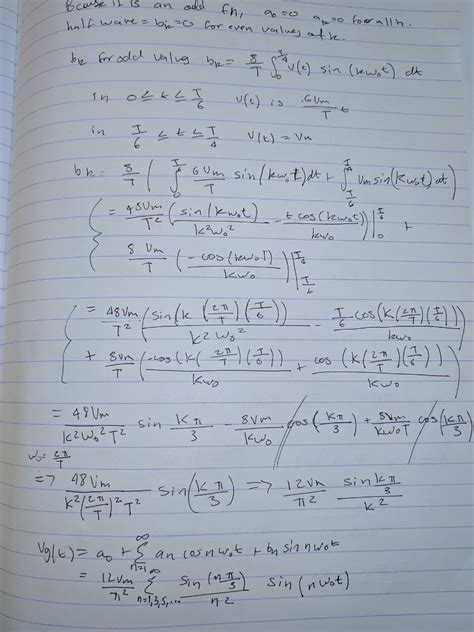 Bcause it is an odd fn, a₀=0 aₖ=0 for all k.
half wave = bₖ=0 for even values of k.
bₖ for odd values bₖ = 8/T ∫₀^(T/4) V(t) sin(kω₀t) dt
in 0 ≤ t ≤ T/6 V(t) is 6Vm/T t
in T/6 ≤ t ≤ T/4 V(t) = Vm
bₖ = 8/T ( ∫₀^(T/6) 6Vm/T sin(kω₀t) dt + ∫_(T/6)^(T/4) Vm sin(kω₀t) dt )
= 48Vm/T² ( sin(kω₀t)/k²ω₀² - t cos(kω₀t)/kω₀ ) |₀^(T/6) +
8Vm/T ( -cos(kω₀T)/kω₀ ) |
= 48Vm/T² ( sin(k(2π/T)(T/6))/k²ω₀² - T/6 cos(k(2π/T)(T/6))/kω₀ )
+ 8Vm/T ( -cos(k(2π/T)(T/6))/kω₀ + cos(k(2π/T)(T/6))/kω₀ )
= 48Vm/k²ω₀²T² sin kπ/3 - 8Vm/kω₀ cos(kπ/3) + 8Vm/kω₀T cos(kπ/3)
ω₀= 2π/T
=> 48Vm/k²(2π/T)²T² sin(kπ/3) => 12Vm/π² sin kπ/3 / k²
Vg(t) = a₀ + Σ_(n=1)^∞ an cos nω₀t + bn sin nω₀t
= 12Vm/π² Σ_(n=1,3,5,...)^∞ sin(nπ/3)/n² sin(nω₀t)